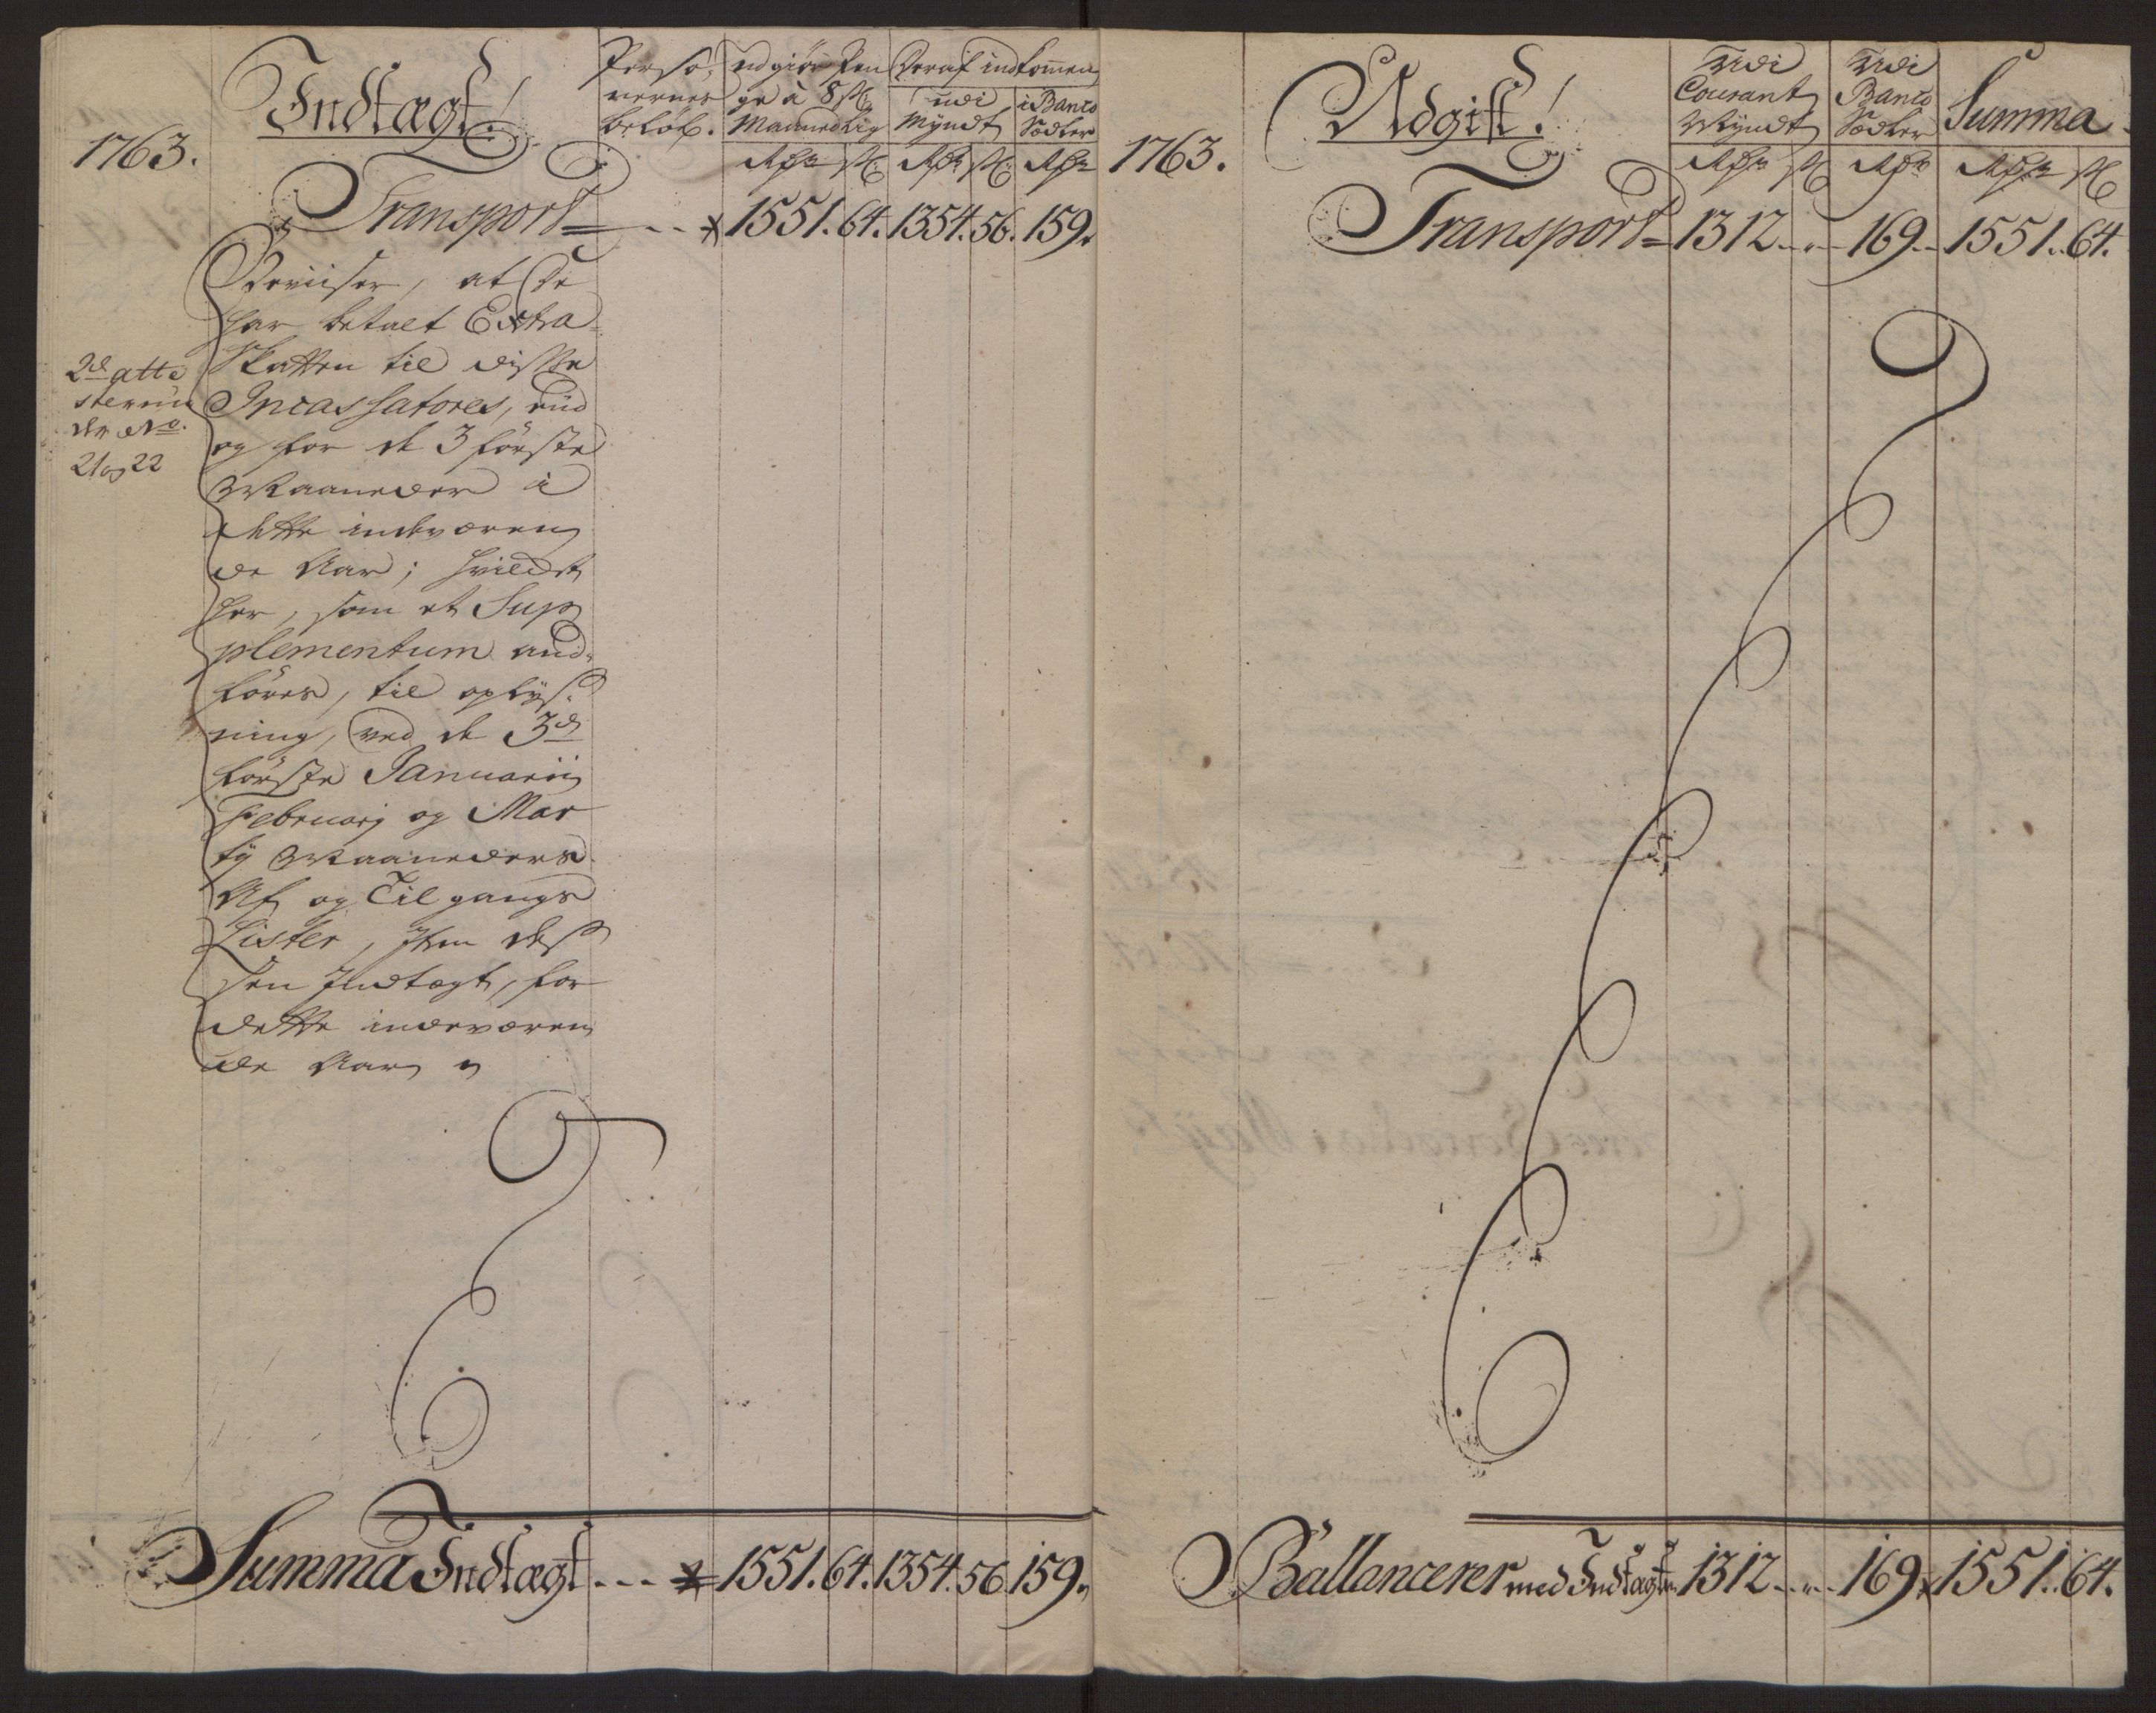 1763.
Indtægt!
Perso-
nernes
beløb.
udgiør Pen
ge à 8 ß
Maanedlig
Deraf indkommen
udi
Myndt
i Banco
Sedler
Rdr ß Rdr ß Rdr
Transport - - 1551. 64. 1354. 56. 159.
Beviiser, at De
har betalt Extra
Skatten til disse
Incassatores,
og for de 3 første
Maaneder i
dette indværen
de Aar; hvilcket
her, som et Sup
plementum and-
føres, til oplys-
ning, ved de 3de
første Januarii
Februarj og Mar
tij Maaneders
Af og Tilgangs
Lister, Item des
sen Indtægt, for
dette indeværen
de Aar
2de atte
ster un
der No.
21 og 22
Summa Indtægt - - - 1551. 64. 1354. 56. 159.
1763.
Udgift!
Udi
Courant
Myndt
Udi
Banco
Sedler
Summa
Rdr ß Rdr Rdr ß
Transport 1312 - " - 169 - 1551. 64.
Ballancerer med Indtægten 1312 - " - 169. 1551. 64.